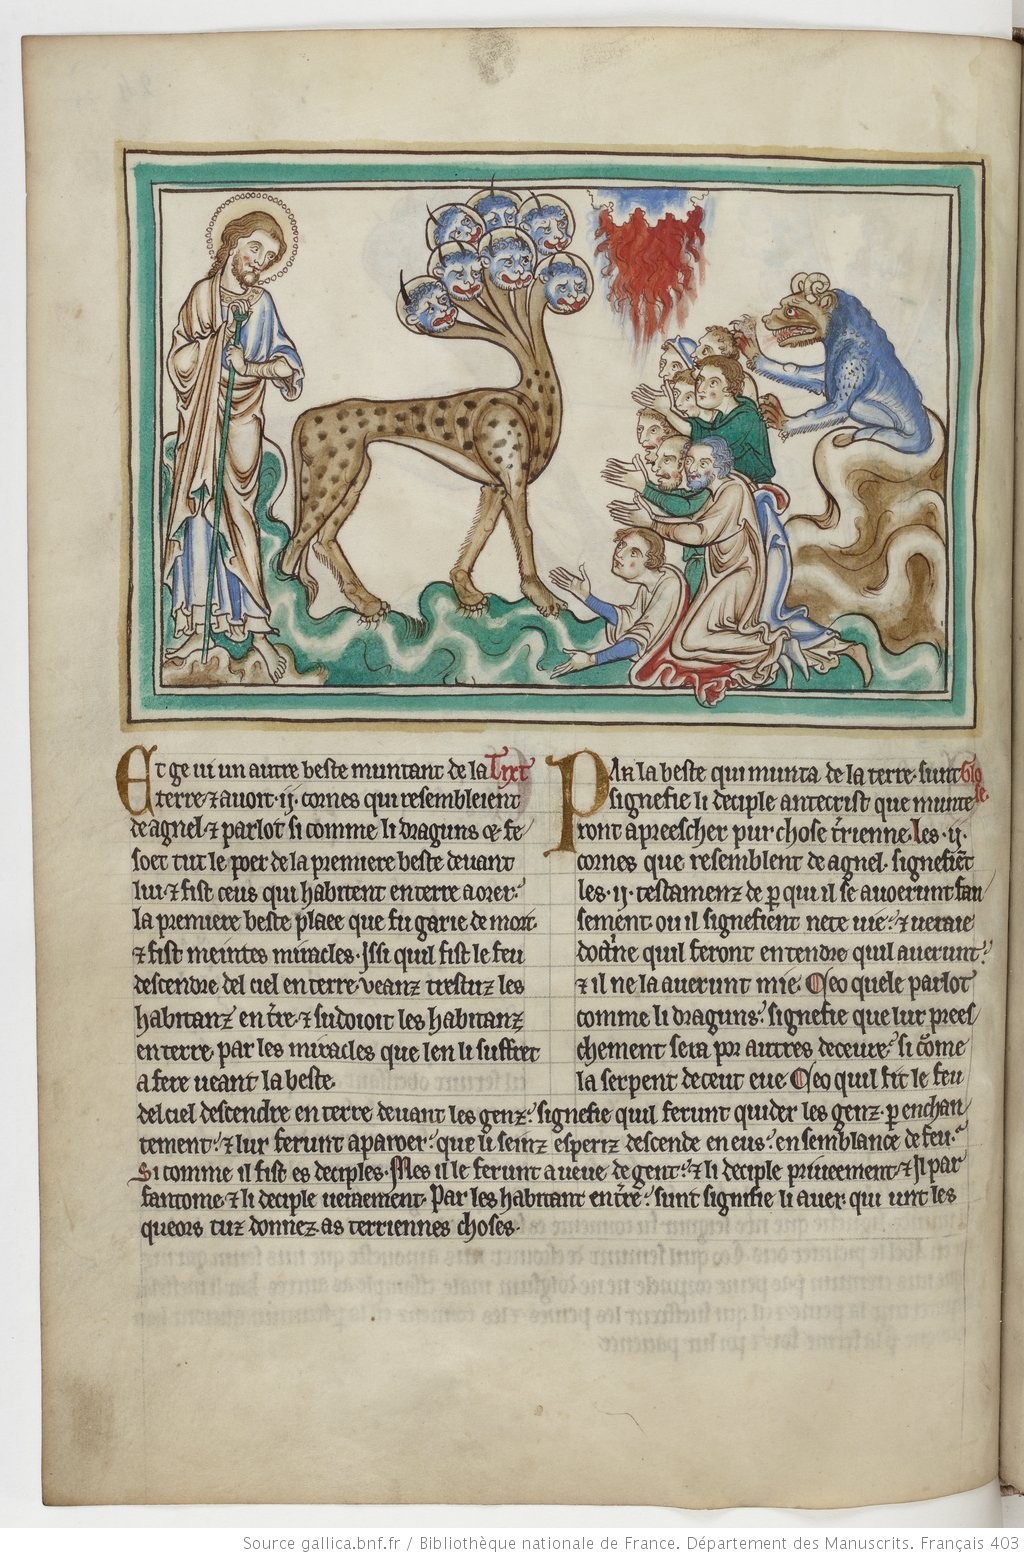 Et ge ui un autre beste muntant de la Tixt
terre ⁊ auoit ·ij· cornes qui resembleient
de agnel ⁊ parlot si comme li draguns ⁊ fe
soet tut le poer de la premiere beste deuant
lui ⁊ fist ceus qui habitent en terre aorer
la premiere beste plaee que fu garie de mort
⁊ fist meintes miracles. Issi quil fist le feu
descendre del ciel en terre ueanz trestuz les
habitanz en t̄re ⁊ sudoioit les habitanz
en terre par les miracles que len li suffret
a fere ueant la beste.
Par la beste qui munta de la terre sunt Glo
signefie li deciple antecrist que munte se.
ront a preescher pur chose t̄rienne. Les ·ij·
cornes que resemblent de agnel signefient
les ·ij· testamenz de ꝑ qui il se auoerunt fau
sement ou il signefient nete uie ⁊ ueraie
quil feront entendre quil auerunt
⁊ il ne la auerunt mie. Ceo quele parlot
comme li draguns signefie que lur prees
chement sera por autres deceure si cōme
la serpent deceut eue. Ceo quil fit le feu
del ciel descendre en terre deuant les genz signefie quil ferunt quider les genz ꝑ enchan
tement ⁊ lur ferunt aparoer que li seinz esperiz descende en eus en semblance de feu
Si comme il fist es deciples. Mes il le ferunt a ueue de gent ⁊ li deciple priueement ⁊ Il par
fantome ⁊ li deciple ueraement. Par les habitant en t̄re sunt signifie li auer qui unt les
queors tuz donnez as terriennes choses.
Source gallica.bnf.fr / Bibliothèque nationale de France. Département des Manuscrits. Français 403